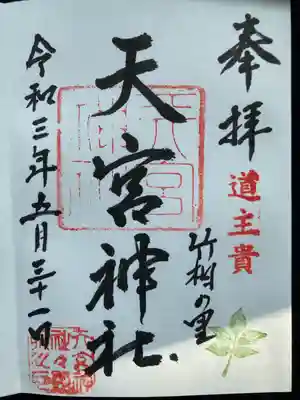 奉拝
道主貴
竹樹の里
天宮神社
天宮
令和三年五月三十一日